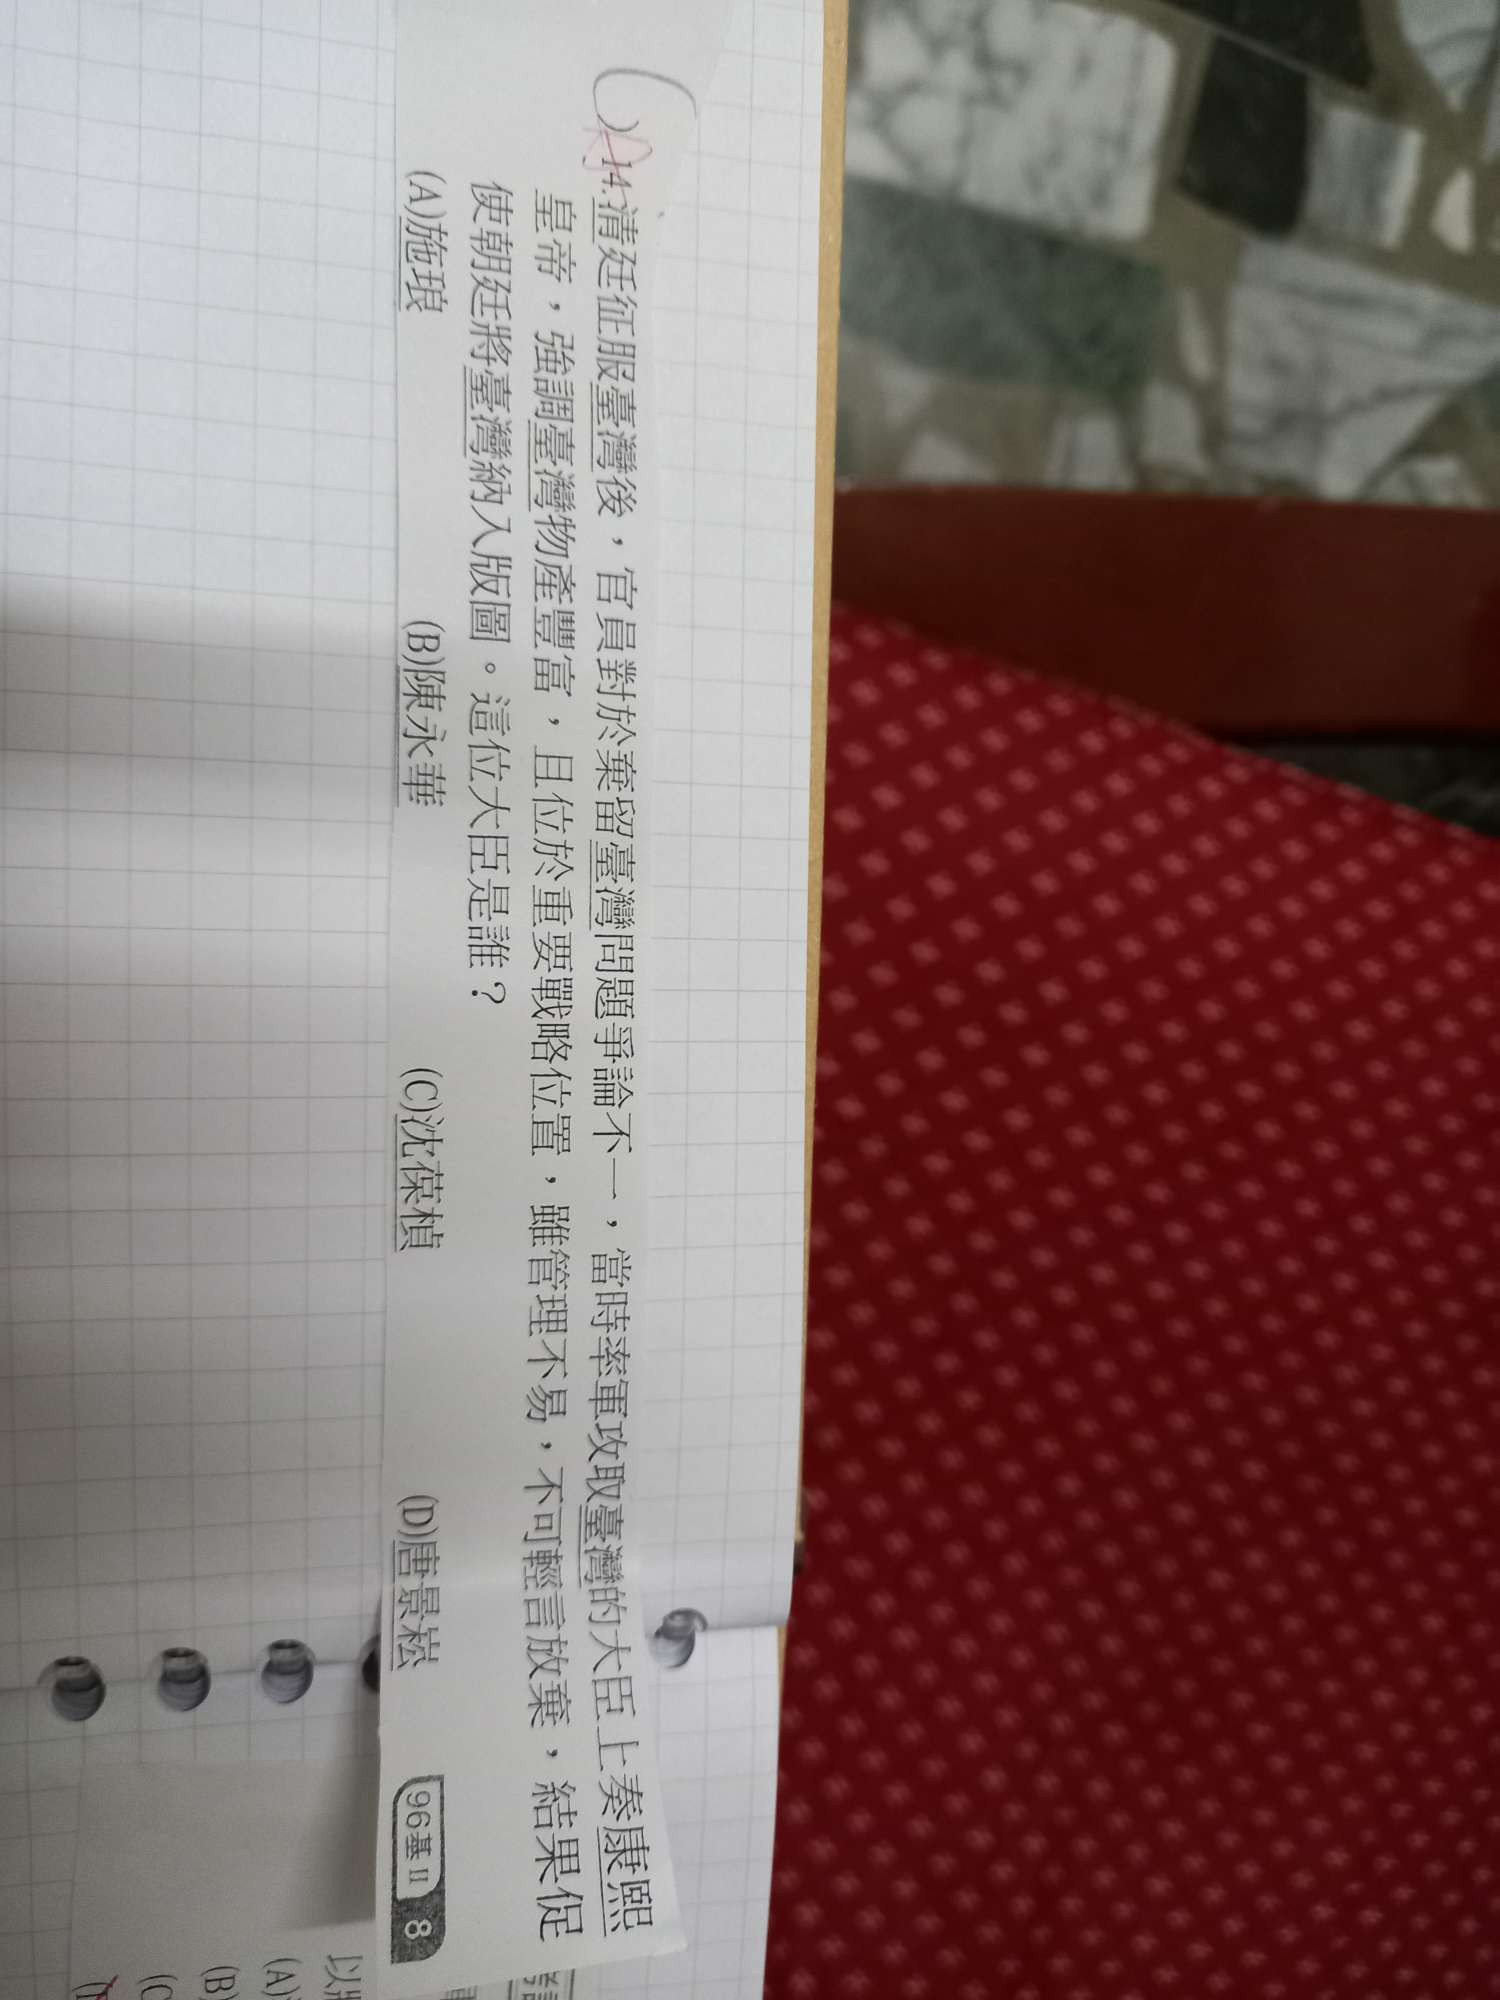 ( )14.清廷征服臺灣後，官員對於棄留臺灣問題爭論不一，當時率軍攻取臺灣的大臣上奏康熙
皇帝，強調臺灣物產豐富，且位於重要戰略位置，雖管理不易，不可輕言放棄，結果促
使朝廷將臺灣納入版圖。這位大臣是誰？
(A)施琅 (B)陳永華 (C)沈葆楨 (D)唐景崧 96基Ⅱ 8
以
(A)
(B)
(C